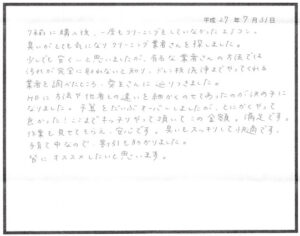 平成27年7月31日
7年前に購入後、一度もクリーニングをしていなかったエアコン。
臭いがとても気になりクリーニング業者さんを探しました。
少しでも安く…と思いましたが、有名な業者さんの方法では
汚れが完全に取れないと知り、ドレン板洗浄までやってくれる
業者を調べたところ、 さんに辿りつきました。
HPに方法や他者との違いを細かくのせてあったのが決め手に
なりました。予算をだいぶオーバーしましたが、とにかくやって
良かった!ここまでキッチリやって頂いてこの金額。満足です。
作業も見せてもらえ、安心です。臭いもスッキリして快適です。
子育て中なので、割引も助かりました。
皆にオススメしたいと思います。